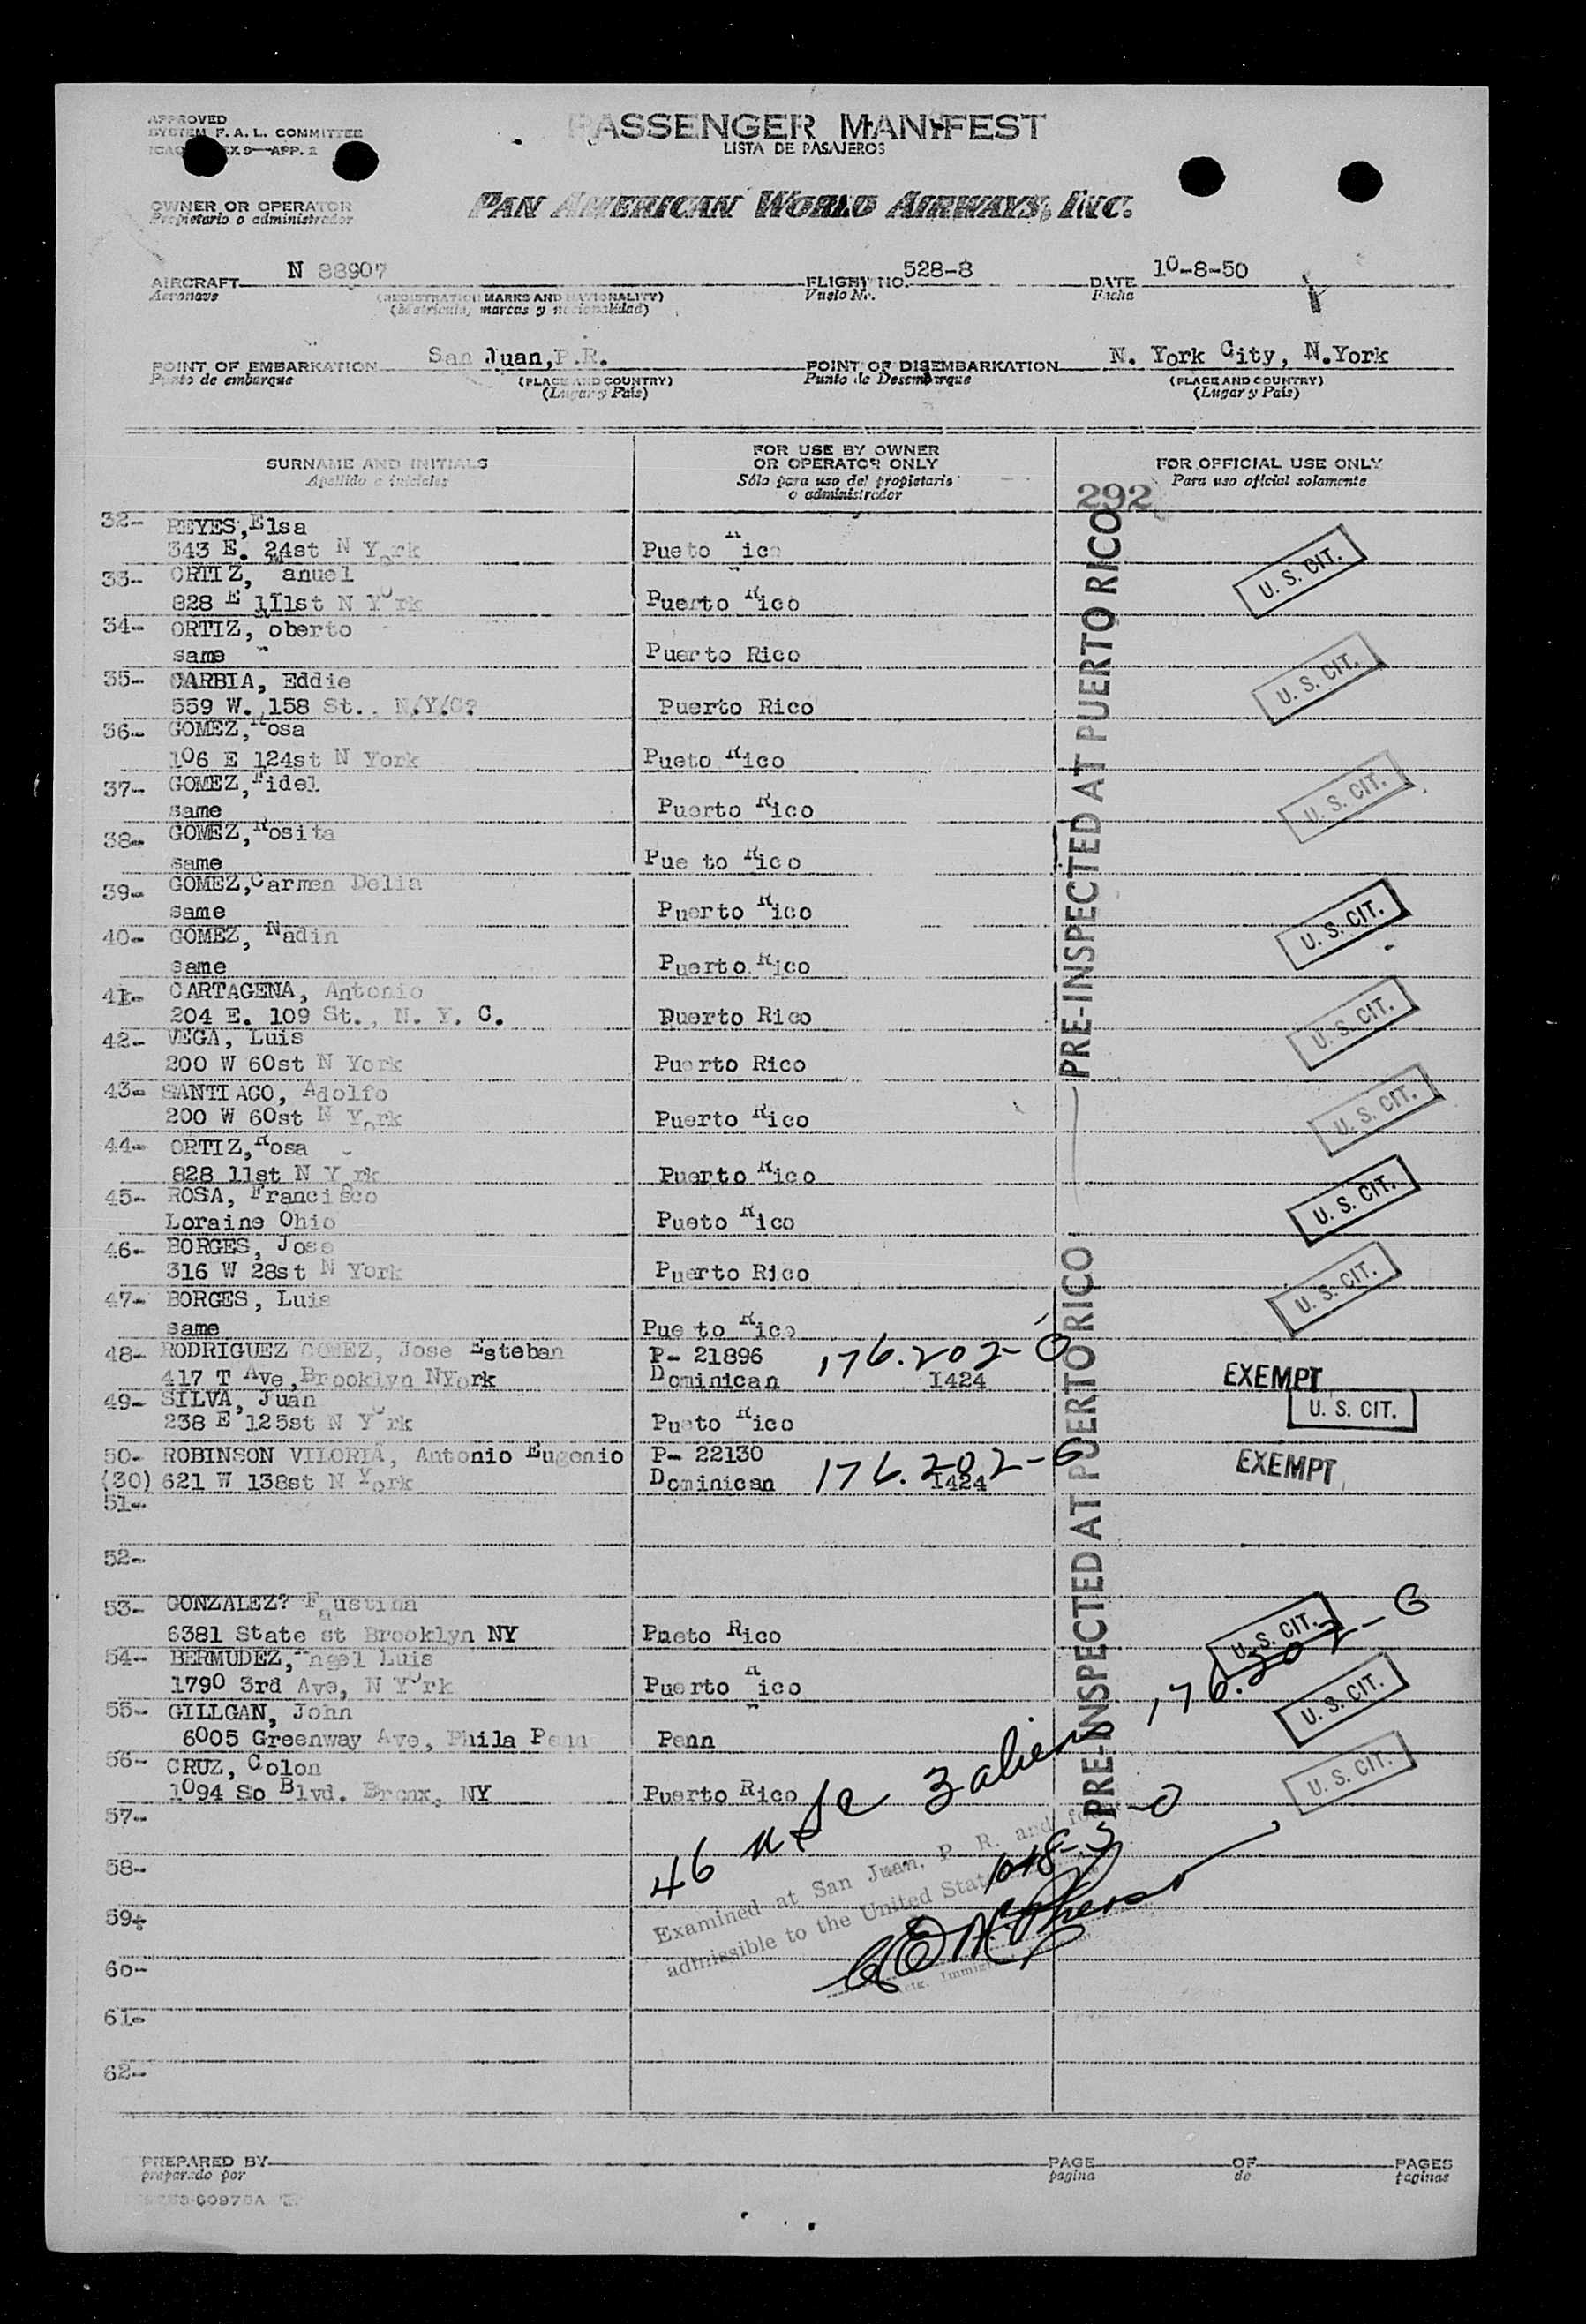 APPROVED
SYSTEM F. A. L. COMMITTEE
EX 9—APP. 2
PASSENGER MANIFEST
LISTA DE PASAJEROS
OWNER OR OPERATOR
Propietario o administrador
PAN AMERICAN WORLD AIRWAYS, INC.
AIRCRAFT N 88907 FLIGHT NO. 528-8 DATE 10-8-50
Aeronave (REGISTRATION MARKS AND NATIONALITY) Vuelo No. Fecha
(Matricula, marcas y nacionalidad)
POINT OF EMBARKATION San Juan,P.R. POINT OF DISEMBARKATION N. York City, N.York
Punto de embarque (PLACE AND COUNTRY) Punto de Desembarque (PLACE AND COUNTRY)
(Lugar y Pais) (Lugar y Pais)
SURNAME AND INITIALS FOR USE BY OWNER OR OPERATOR ONLY FOR OFFICIAL USE ONLY
Apellido e iniciales Sólo para uso del propietario o administrador Para uso oficial solamente
292
PRE-INSPECTED AT PUERTO RICO
32- REYES,Elsa
343 E. 24st N York Pueto Rico U. S. CIT.
33- ORTIZ, Manuel
828 E 111st N York Puerto Rico
34- ORTIZ, Roberto
same Puerto Rico U. S. CIT.
35- CARBIA, Eddie
559 W. 158 St.. N/Y/C? Puerto Rico
36- GOMEZ,Rosa
106 E 124st N York Pueto Rico U. S. CIT.
37- GOMEZ,Fidel
same Puerto Rico
38- GOMEZ,Rosita
same Pue to Rico
39- GOMEZ,Carmen Delia
same Puerto Rico U. S. CIT.
40- GOMEZ, Nadin
same Puerto Rico
41- CARTAGENA, Antonio
204 E. 109 St., N. Y. C. Puerto Rico U. S. CIT.
42- VEGA, Luis
200 W 60st N York Puerto Rico
43- SANTIAGO, Adolfo
200 W 60st N York Puerto Rico U. S. CIT.
44- ORTIZ,Rosa
828 11st N York Puerto Rico
45- ROSA, Francisco
Loraine Ohio Pueto Rico U. S. CIT.
46- BORGES, Jose
316 W 28st N York Puerto Rico U. S. CIT.
47- BORGES, Luis
same Pue to Rico
PRE-INSPECTED AT PUERTO RICO
48- RODRIGUEZ GOMEZ, Jose Esteban P- 21896 176.202-G
417 T Ave,Brooklyn NYork Dominican I424 EXEMPT
49- SILVA, Juan U. S. CIT.
238 E 125st N York Pueto Rico
50- ROBINSON VILORIA, Antonio Eugenio P- 22130 176.202-G EXEMPT
(30) 621 W 138st N York Dominican I424
51-
52-
53- GONZALEZ? Faustina
6381 State st Brooklyn NY Pueto Rico U. S. CIT.
176.202-G
54- BERMUDEZ,Angel Luis
1790 3rd Ave, N York Puerto Rico U. S. CIT.
55- GILLGAN, John
6005 Greenway Ave, Phila Penn Penn
56- CRUZ, Colon
1094 So Blvd. Bronx, NY Puerto Rico U. S. CIT.
57-
46 USC 3 aliens
58-
Examined at San Juan, P. R. and found
admissible to the United States
10-8-50
59-
60-
61-
62-
PREPARED BY PAGE OF PAGES
preparado por pagina de paginas